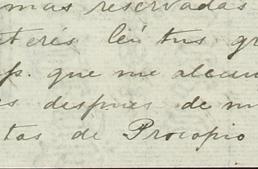 mas reservadas
terés leí tus gr
p. que me alcan
s despues de m
tas de Procopio